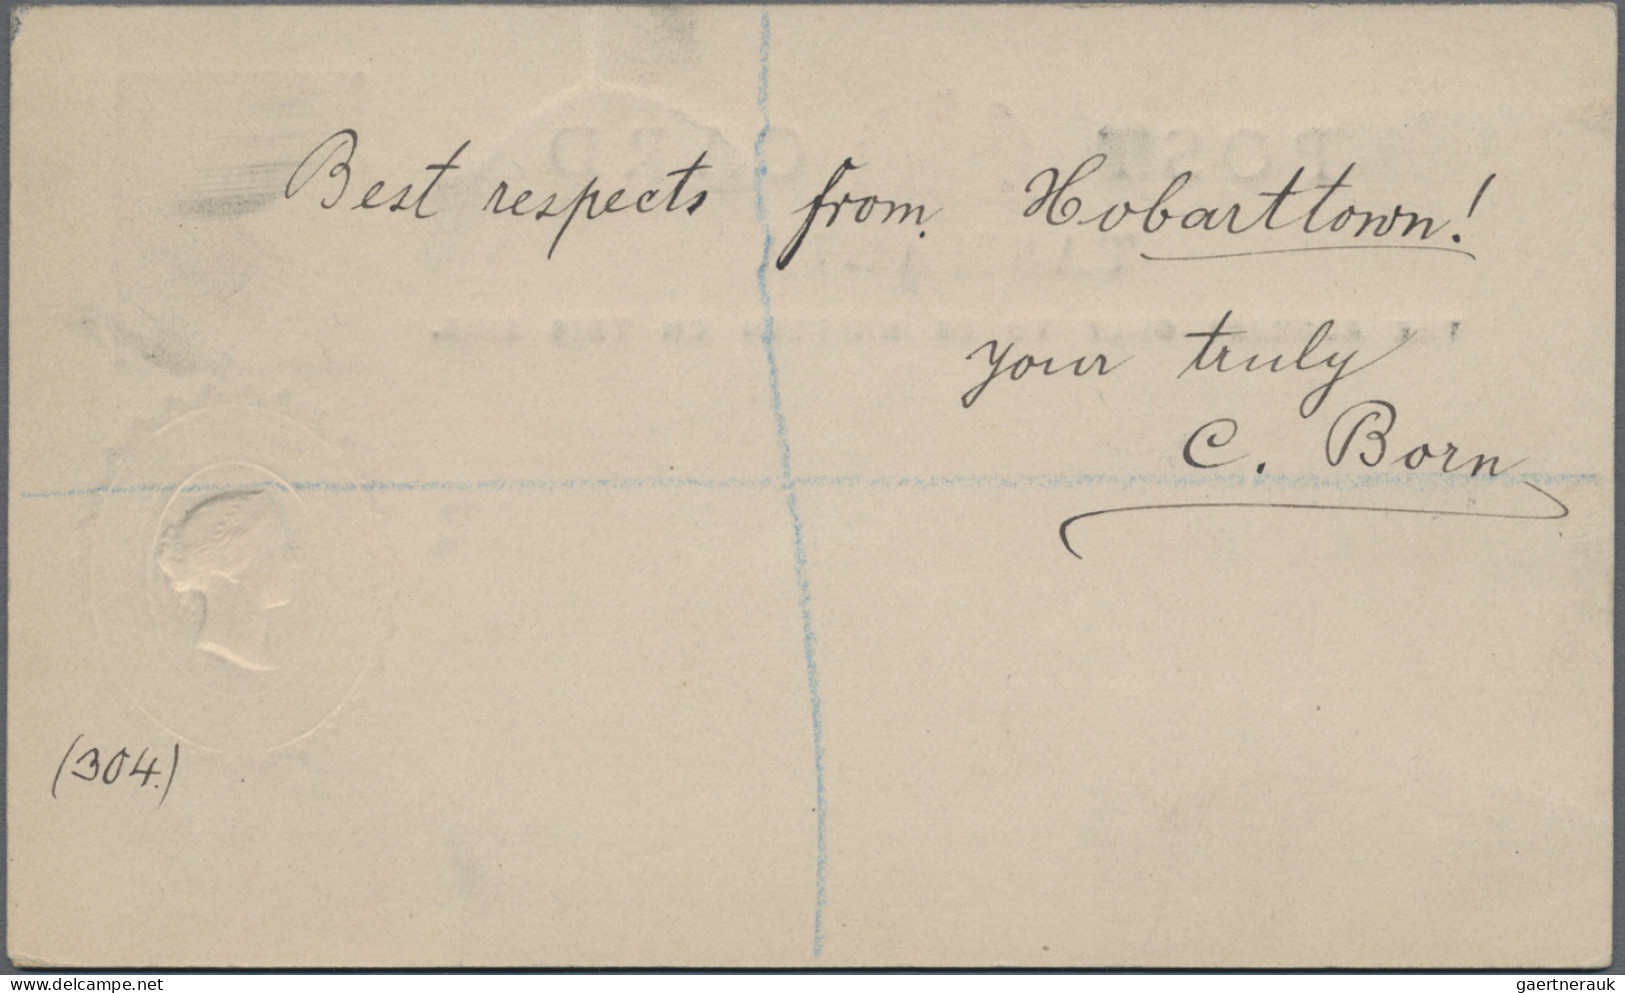 Best respects from Hobarttown!
your truly
C. Born
(304.)
delcampe.net
gaertnerauk